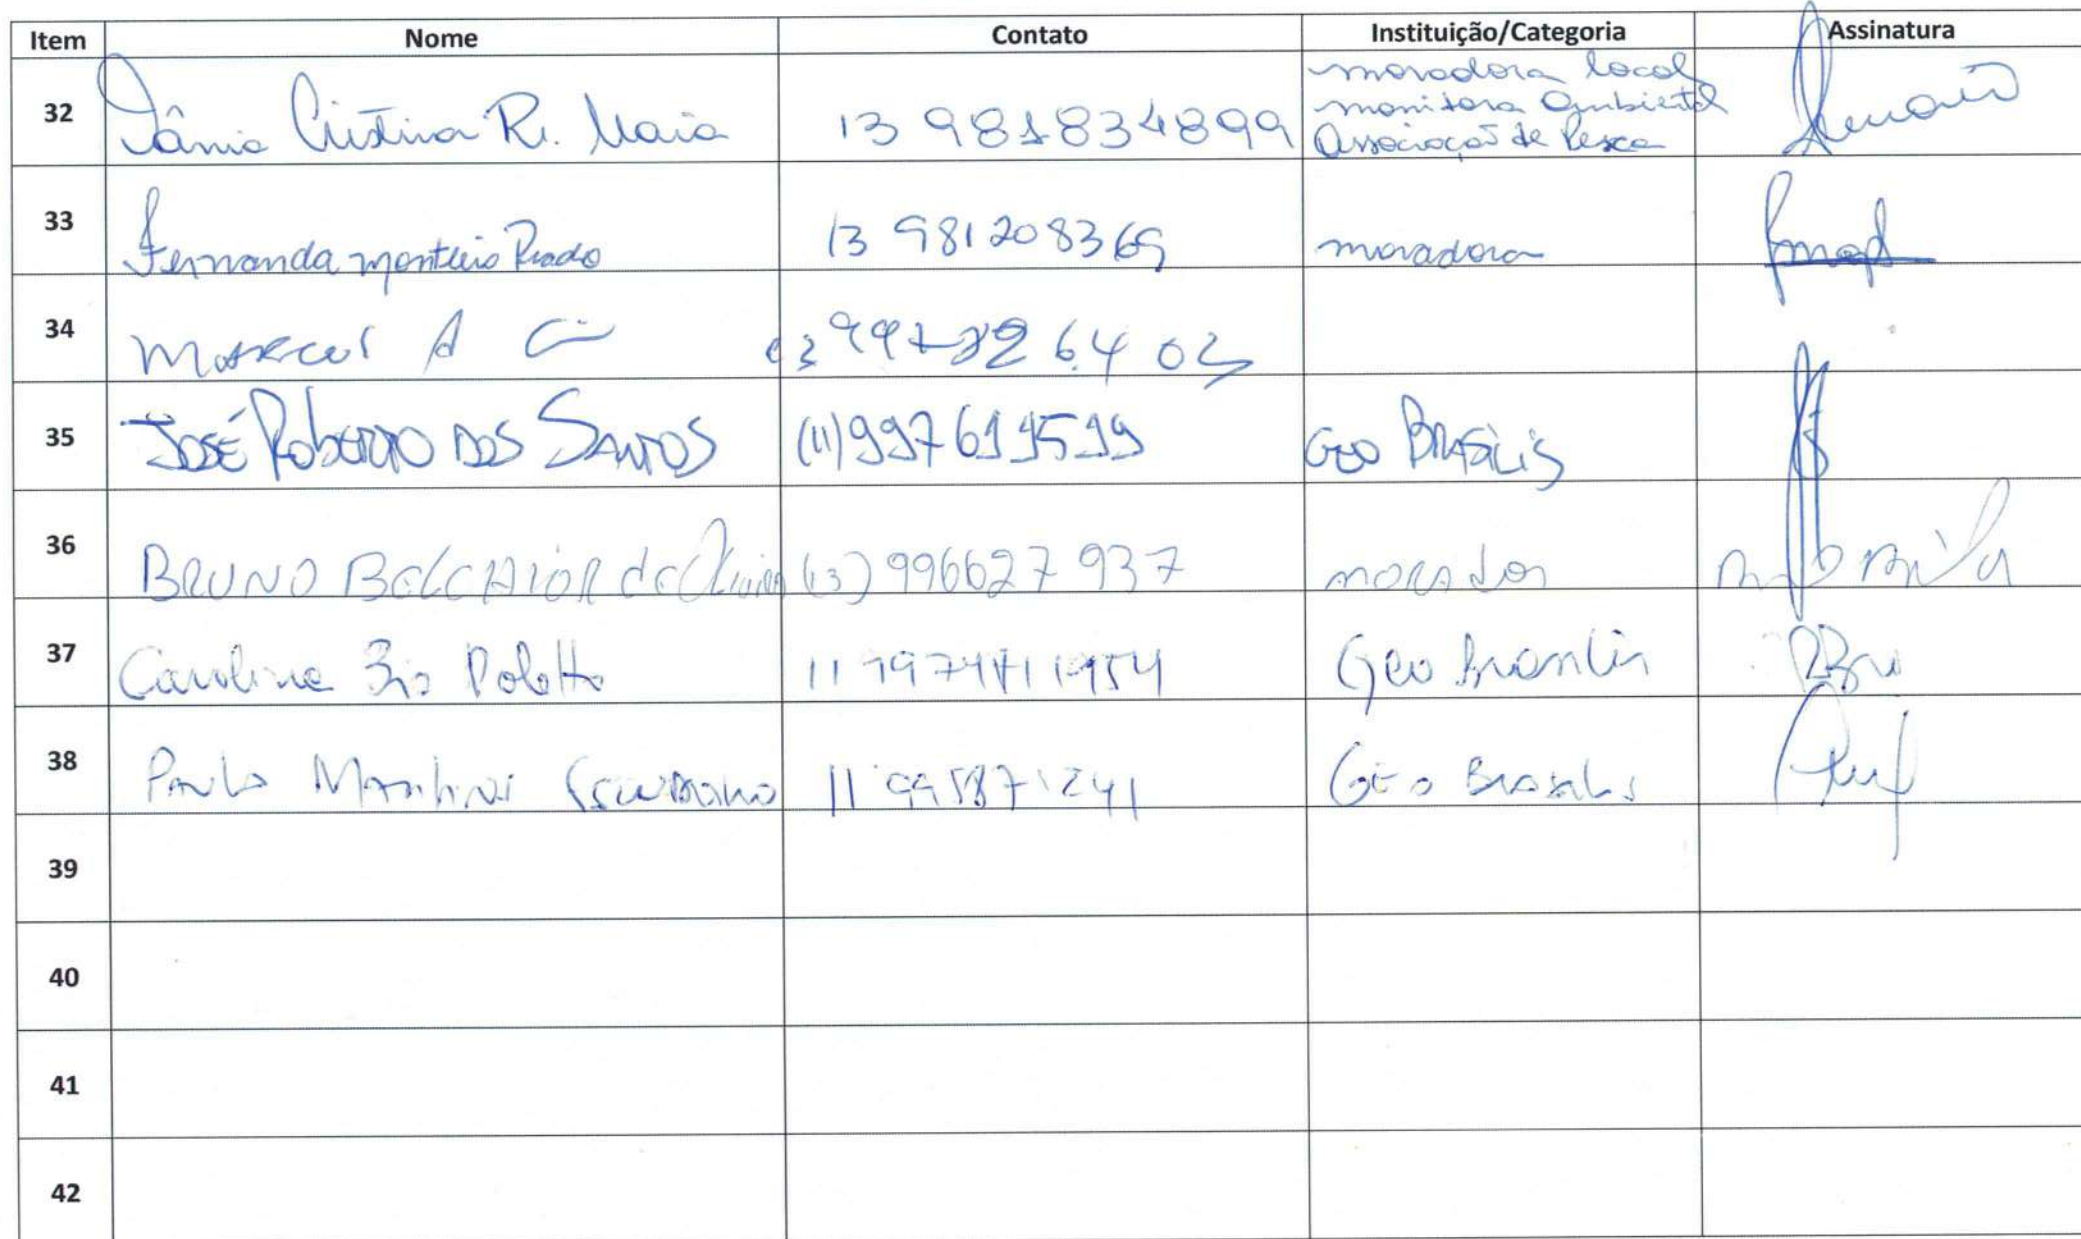 Item Nome Contato Instituição/Categoria Assinatura
32 Tânia Cristina R. Maia 13 981834899 moradora local
monitora Ambiental
Associação de Pesca
33 Fernanda Monteiro Prado 13 981208369 moradora
34 A
35 JOSÉ ROBERTO DOS SANTOS (11) 997619599 GEO BRASILIS
36 BRUNO BELCHIOR de Oliveira (13) 996627937 morador
37 Caroline Poletto 11 Geo Brasilis
38 Paulo Martins 11 995871241 GEO Brasilis
39
40
41
42